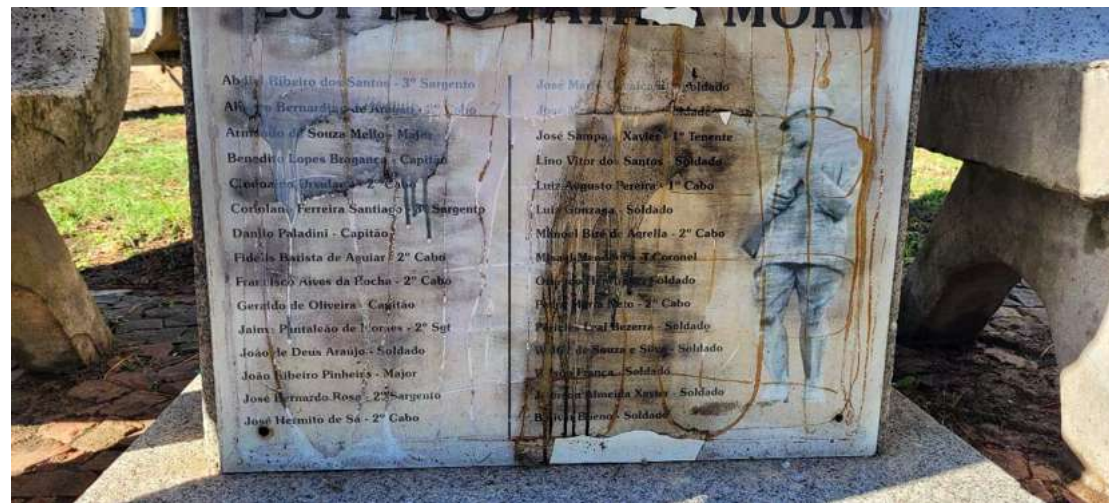 PATRIA MORI
Ribeiro dos Santos - 3º Sargento
Bernardino de - 2º Cabo
Armando de Souza Mello - Major
Benedito Lopes Bragança - Capitão
- 2º Cabo
Ferreira Santiago - 3º Sargento
Danilo Paladini - Capitão
Fidelis Batista de Aguiar - 2º Cabo
Francisco Alves da Rocha - 2º Cabo
Geraldo de Oliveira - Capitão
Jaime Pantaleão de Moraes - 2º Sgt
João de Deus Araujo - Soldado
João Ribeiro Pinheiro - Major
José Bernardo Rosa - 2º Sargento
José Hermito de Sá - 2º Cabo
José Mário - Soldado
José - Soldado
José Xavier - 1º Tenente
Lino Vitor dos Santos - Soldado
Luiz Augusto Pereira - 1º Cabo
Luiz Gonzaga - Soldado
Manoel de Agrella - 2º Cabo
Misael - T.Coronel
Soldado
Pedro Maria Neto - 2º Cabo
Péricles Leal Bezerra - Soldado
de Souza e Silva - Soldado
Wilson França - Soldado
Almeida Xavier - Soldado
Bueno - Soldado